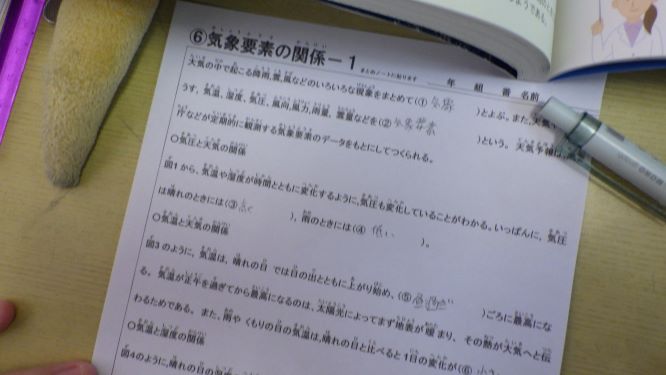 ⑥気象要素の関係－1
まとめノートに貼ります
年 組 番 名前
大気の中で起こる降雨,雲,風などのいろいろな現象をまとめて(① 気象 )とよぶ。また,天
うす, 気温, 湿度, 気圧, 風向, 風力, 雨量, 雲量などを(② 気象要素 )という。天気予報は
庁などが定期的に観測する気象要素のデータをもとにしてつくられる。
○気圧と天気の関係
図1から, 気温や湿度が時間とともに変化するように,気圧も変化していることがわかる。いっぱんに, 気圧
は晴れのときには(③ 高く ), 雨のときには(④ 低い )。
○気温と天気の関係
図3のように, 気温は, 晴れの日 では日の出とともに上がり始め, (⑤ )ごろに最高にな
る。 気温が正午を過ぎてから最高になるのは, 太陽光によってまず地表が 暖 まり, その熱が大気へと伝
わるためである。 また, 雨や くもりの日の気温は,晴れの日と比べると1日の変化が(⑥ 小さ
○気温と湿度の関係
図4のように,晴れの日の